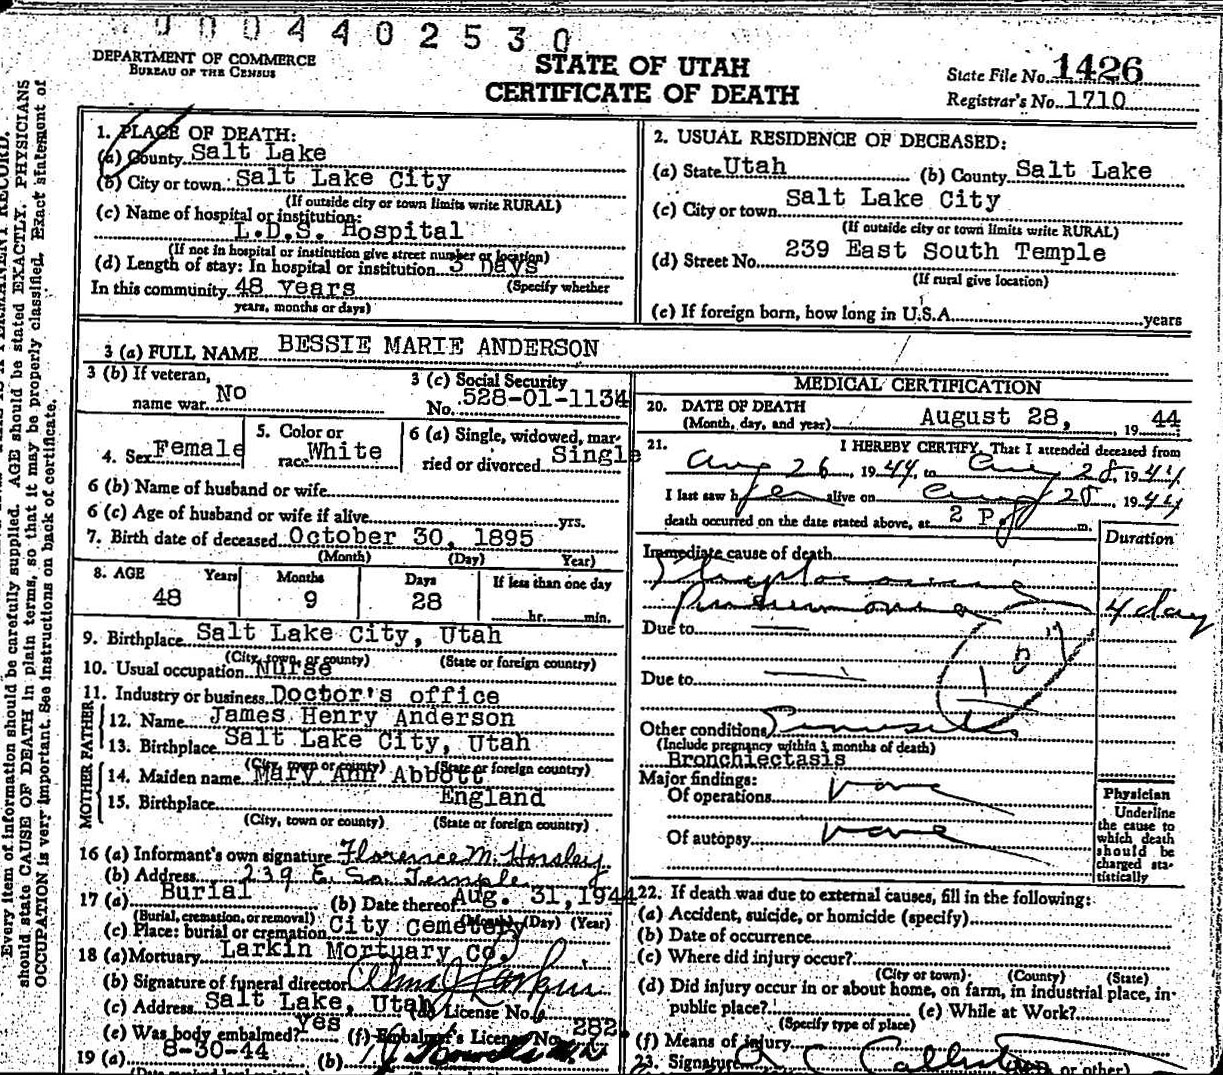 000440 2530
DEPARTMENT OF COMMERCE
BUREAU OF THE CENSUS
STATE OF UTAH
CERTIFICATE OF DEATH
State File No. 1426
Registrar's No. 1710
Every item of information should be carefully supplied. AGE should be stated EXACTLY. PHYSICIANS
should state CAUSE OF DEATH in plain terms, so that it may be properly classified. Exact statement of
OCCUPATION is very important. See instructions on back of certificate.
1. PLACE OF DEATH:
(a) County Salt Lake
(b) City or town Salt Lake City
(If outside city or town limits write RURAL)
(c) Name of hospital or institution:
L.D.S. Hospital
(If not in hospital or institution give street number or location)
(d) Length of stay: In hospital or institution 3 Days
(Specify whether
In this community 48 Years
years, months or days)
2. USUAL RESIDENCE OF DECEASED:
(a) State Utah (b) County Salt Lake
(c) City or town Salt Lake City
(If outside city or town limits write RURAL)
(d) Street No. 239 East South Temple
(If rural give location)
(e) If foreign born, how long in U.S.A. years
3 (a) FULL NAME BESSIE MARIE ANDERSON
3 (b) If veteran,
name war No
3 (c) Social Security
No. 528-01-1134
4. Sex Female
5. Color or
race White
6 (a) Single, widowed, mar-
ried or divorced Single
6 (b) Name of husband or wife
6 (c) Age of husband or wife if alive yrs.
7. Birth date of deceased October 30, 1895
(Month) (Day) Year)
8. AGE Years Months Days If less than one day
48 9 28 hr. min.
9. Birthplace Salt Lake City, Utah
(City, town, or county) (State or foreign country)
10. Usual occupation Nurse
11. Industry or business Doctor's office
FATHER
12. Name James Henry Anderson
13. Birthplace Salt Lake City, Utah
(City, town or county) (State or foreign country)
MOTHER
14. Maiden name Mary Ann Abbott
15. Birthplace England
(City, town or county) (State or foreign country)
16 (a) Informant's own signature Florence M. Horsley
(b) Address 239 E. So. Temple
17 (a) Burial (b) Date thereof Aug. 31, 1944
(Burial, cremation, or removal) (Month) (Day) (Year)
(c) Place: burial or cremation City Cemetery
18 (a) Mortuary Larkin Mortuary Co.
(b) Signature of funeral director
(c) Address Salt Lake, Utah (d) License No.
(e) Was body embalmed? yes (f) Embalmer's License No. 282.
19 (a) 8-30-44 (b)
MEDICAL CERTIFICATION
20. DATE OF DEATH
(Month, day, and year) August 28, 19 44
21. I HEREBY CERTIFY, That I attended deceased from
Aug 26, 1944, to Aug 28, 1944
I last saw her alive on Aug 28, 1944
death occurred on the date stated above, at 2 P. m.
Duration
Immediate cause of death
Pneumonia 4 day
Due to
Due to
107
Other conditions Sinusitis
(Include pregnancy within 3 months of death)
Bronchiectasis
Major findings:
Of operations none
Of autopsy none
Physician
Underline
the cause to
which death
should be
charged sta-
tistically
22. If death was due to external causes, fill in the following:
(a) Accident, suicide, or homicide (specify)
(b) Date of occurrence
(c) Where did injury occur?
(City or town) (County) (State)
(d) Did injury occur in or about home, on farm, in industrial place, in
public place? (e) While at Work?
(Specify type of place)
(f) Means of injury
23. Signature or other)